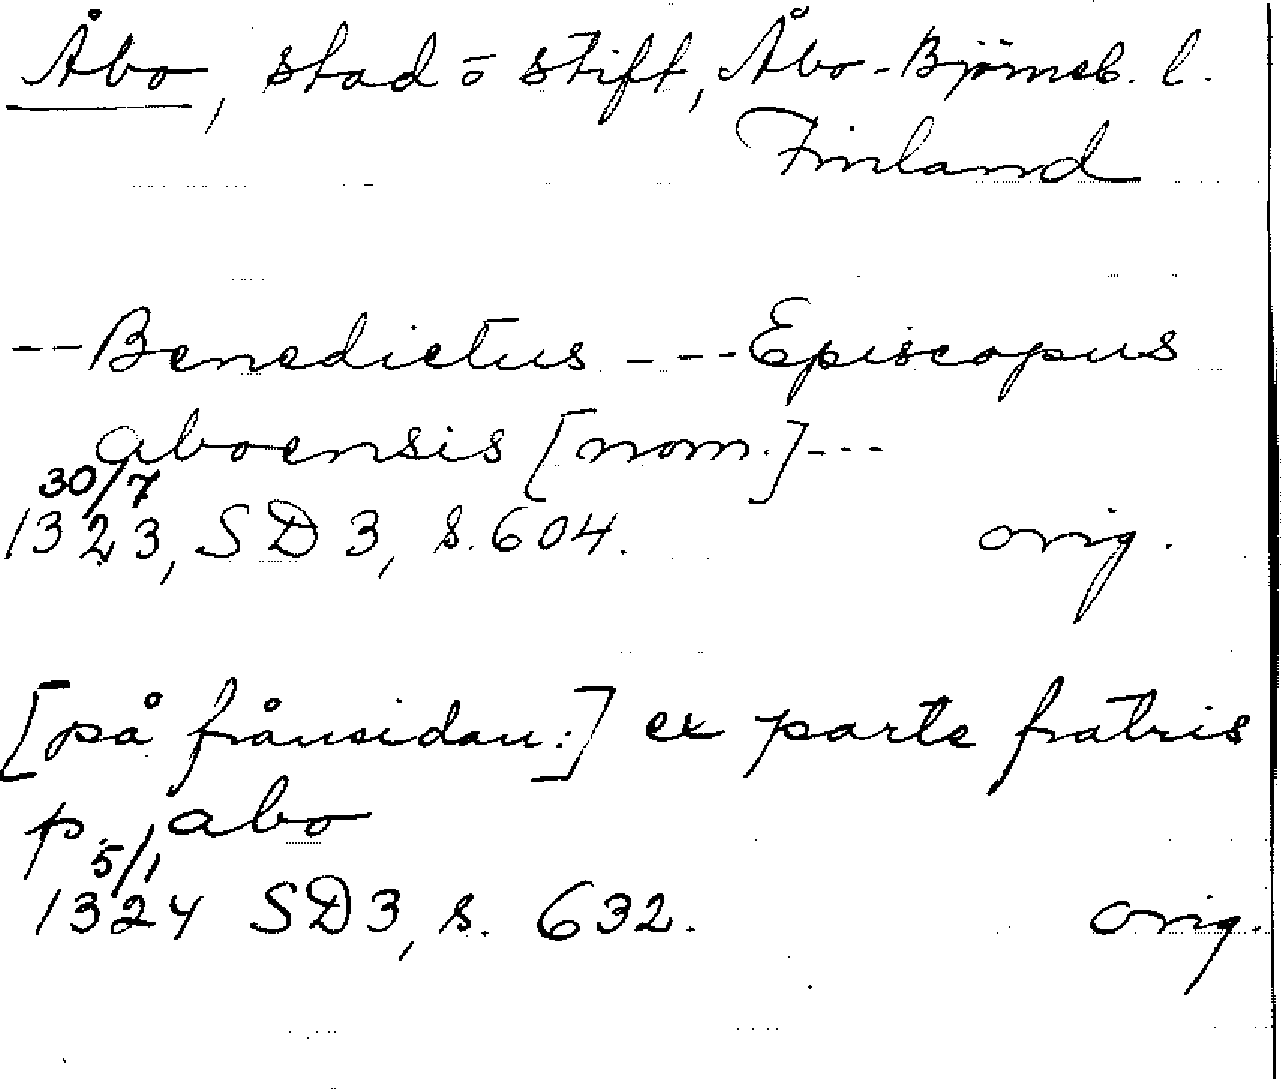 Åbo, stad o stift, Åbo-Björneb. l.
Finland
--Benedictus ---Episcopus
aboensis [nom.]---
30/7
1323, SD 3, s. 604. orig.
[på frånsidan:] ex parte fratris
p. abo
5/1
1324 SD3, s. 632. orig.